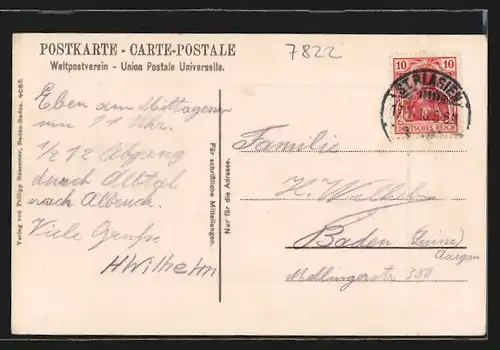 7822
POSTKARTE - CARTE-POSTALE
Weltpostverein - Union Postale Universelle.
10 10
DEUTSCHES REICH
ST. BLASIEN
Eben am Mittagessen
um 11 Uhr.
1/2 12 Abgang
durch Albtal
nach Albbruck.
Viele Grüße
HWilhelm
Verlag von Philipp Hassemer, Baden-Baden. 4085.
Für schriftliche Mitteilungen.
Nur für die Adresse.
Familie
H. Wilhelm
Baden (Suisse)
Aargau
Mellingerstr 380